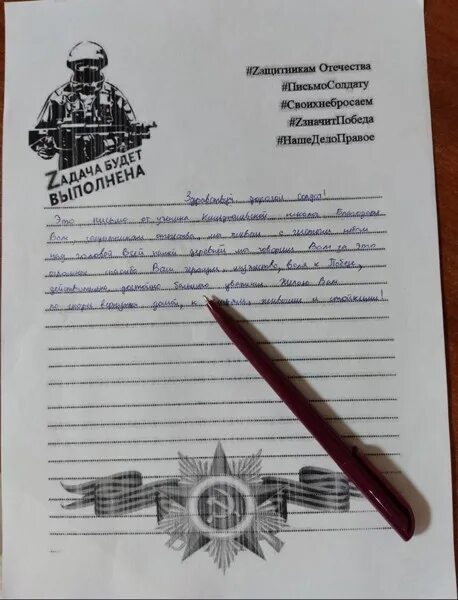 #Zащитникам Отечества
#ПисьмоСолдату
#Своихнебросаем
#ZзначитПобеда
#НашеДелоПравое
Zадача будет
выполнена
Здравствуй дорогой Солдат!
Это письмо от ученика школы Благодарю
Вам, защитникам отечества, мы живём с чистым небом
над головой Всей нашей деревней мы говорим Вам за это
огромное спасибо Ваш мужество, воля к Победе,
действительно, достойны большого уважения Желаю Вам
по скорее вернуться домой, к живыми и